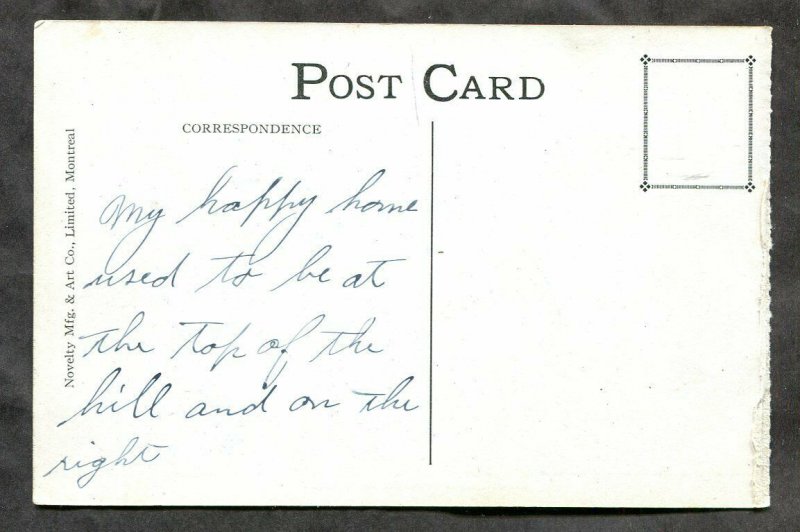 POST CARD
CORRESPONDENCE
My happy home
used to be at
the top of the
hill and on the
right
Novelty Mfg. & Art Co., Limited, Montreal